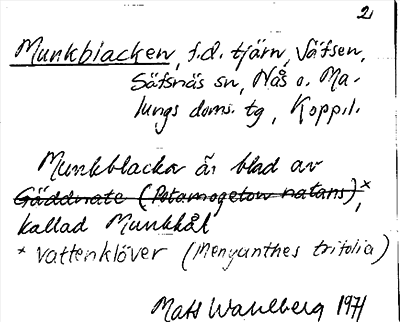 2
Munkblacken, f.d. tjärn, Säfsen,
Säfsnäs sn, Nås o. Ma-
lungs doms. tg, Koppl.
Munkblackor är blad av
Gäddnate (Potamogeton natans)*,
kallad Munkkål
* Vattenklöver (Menyanthes trifolia)
Mats Wahlberg 1971